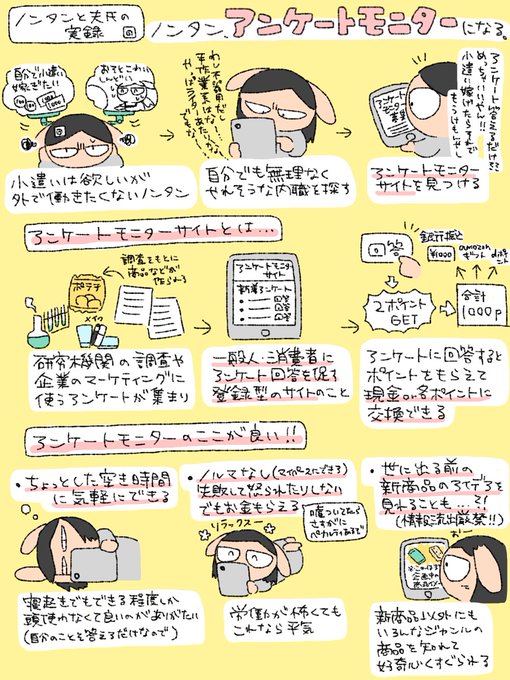 ノンタンと夫氏の
実録 回
ノンタン、アンケートモニターになる。
自分で小遣い
稼ぎたい
1000
おそとこわい
しんどい
小遣いは欲しいが
外で働きたくないノンタン
わし不器用だし
手作業系はな…
自分でも無理なく
やれそうな内職を探す
アンケート答えるだけ!?
めっちゃいいやん!!
小遣い稼げたらそれで
もうけもんやし
アンケート
モニター
募集
アンケートモニター
サイトを見つける
アンケートモニターサイトとは…
調査をもとに
商品などが
作られる
ポテチ
メイク
研究機関の調査や
企業のマーケティングに
使うアンケートが集まり
アンケートモニター
サイト
新着アンケート
回答
回答
回答
一般人・消費者に
アンケート回答を促す
登録型のサイトのこと
回答
2ポイント
GET
銀行振込
¥1000
amazon
ギフト
dポイント
合計
1000p
アンケートに回答すると
ポイントをもらえて
現金or各ポイントに
交換できる
アンケートモニターのここが良い!!
・ちょっとした空き時間
に気軽にできる
寝起きでもできる程度しか
頭使わなくて良いのがありがたい
(自分のことを答えるだけなので)
・ノルマなし(マイペースにできる)
失敗して怒られたりしない
でもお金もらえる
嘘ついてたら
さすがに
ペナルティあるで
リラックスー
労働が怖くても
これなら平気
・世に出る前の
新商品のアイデアを
見れることも…?!
(情報流出厳禁!!)
おー
新商品以外にも
いろんなジャンルの
商品を知れて
好奇心くすぐられる